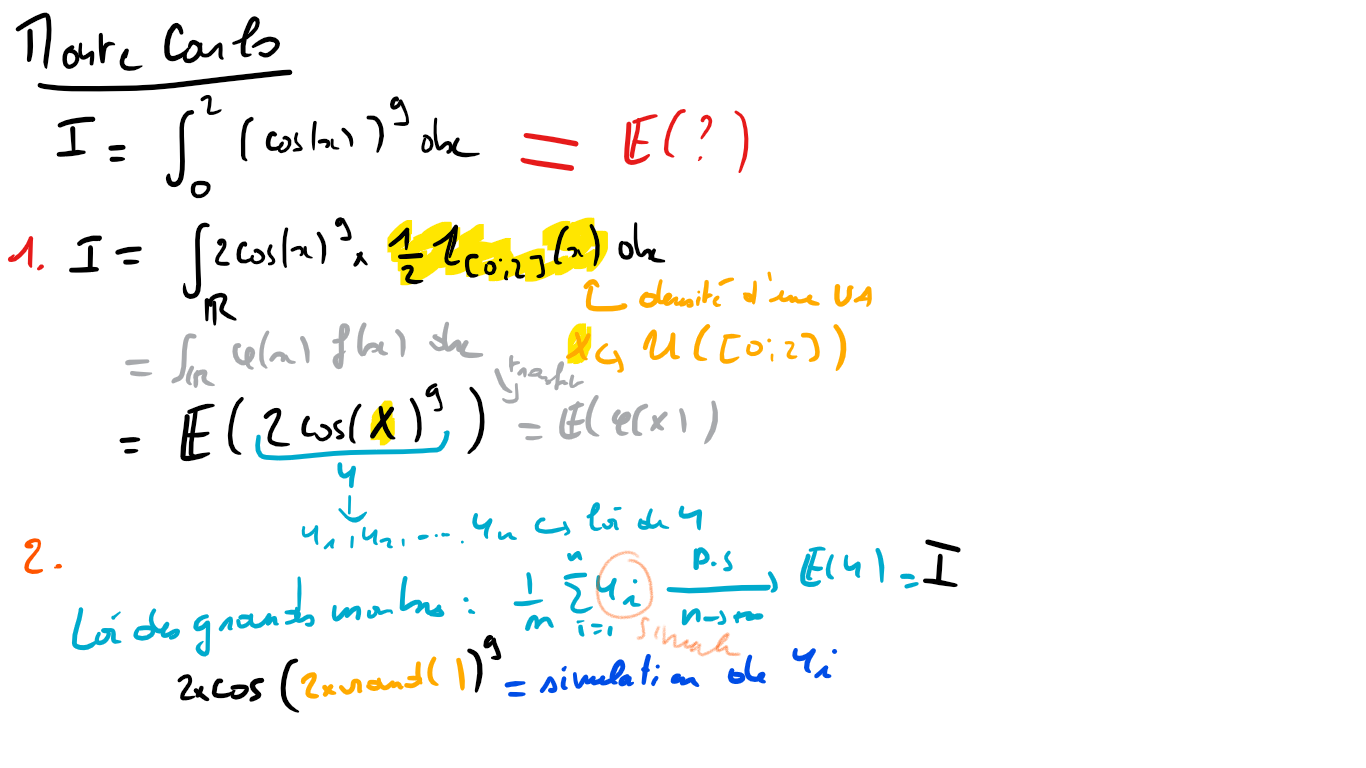 Monte Carlo
I = ∫_0^2 (cos(x))^9 dx = E(?)
1. I = ∫_ℝ 2cos(x)^9 × 1/2 1_[0;2](x) dx
densité d'une VA
= ∫_ℝ φ(x) f(x) dx X ↪ U([0;2])
transfert
= E(2cos(X)^9) = E(φ(X))
Y
↓
Y_1, Y_2, .... Y_n ↪ loi de Y
2.
Loi des grands nombres : 1/n Σ_{i=1}^n Y_i —p.s→ n→+∞ E(Y) = I
simule
2×cos(2×rand())^9 = simulation de Y_i